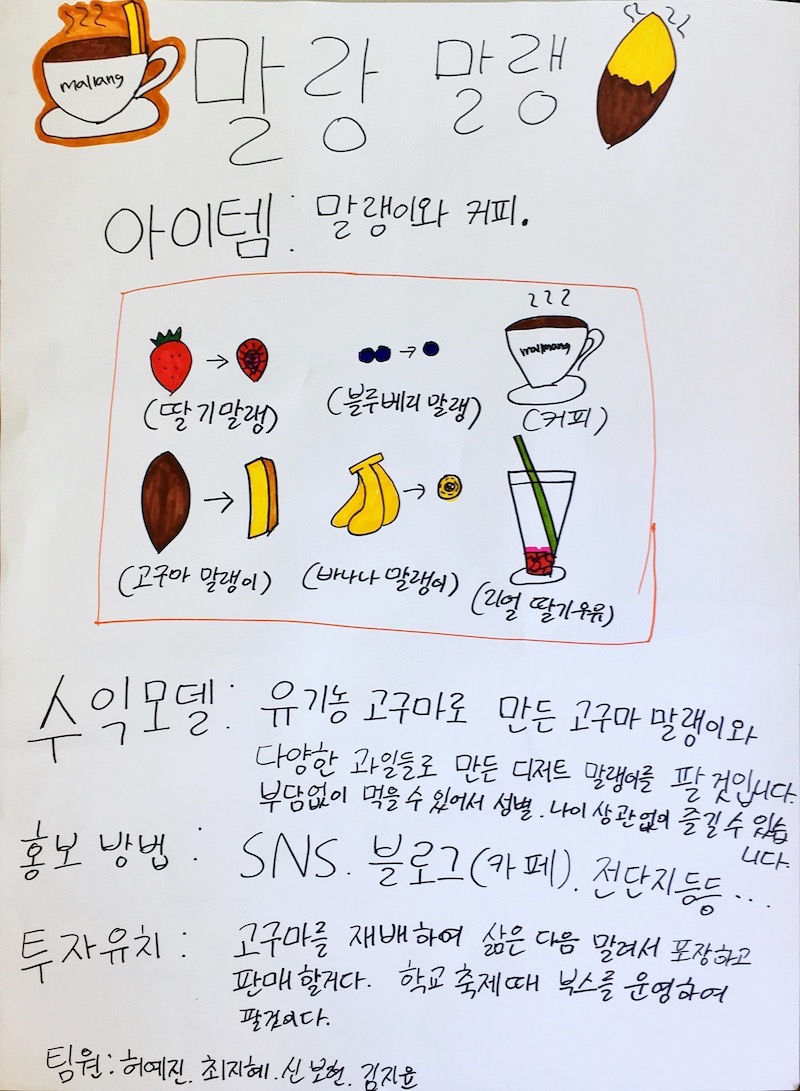 mallang
말랑 말랭
아이템: 말랭이와 커피.
malmang
(딸기말랭) (블루베리 말랭) (커피)
(고구마 말랭이) (바나나 말랭이) (리얼 딸기우유)
수익모델: 유기농 고구마로 만든 고구마 말랭이와
다양한 과일들로 만든 디저트 말랭이를 팔 것입니다.
부담없이 먹을 수 있어서 성별. 나이 상관없이 즐길 수 있습
니다.
홍보 방법: SNS. 블로그(카페). 전단지등등...
투자유치: 고구마를 재배하여 삶은 다음 말려서 포장하고
판매 할거다. 학교 축제때 부스를 운영하여
팔것이다.
팀원: 허예진. 최지혜. 신보현. 김지윤